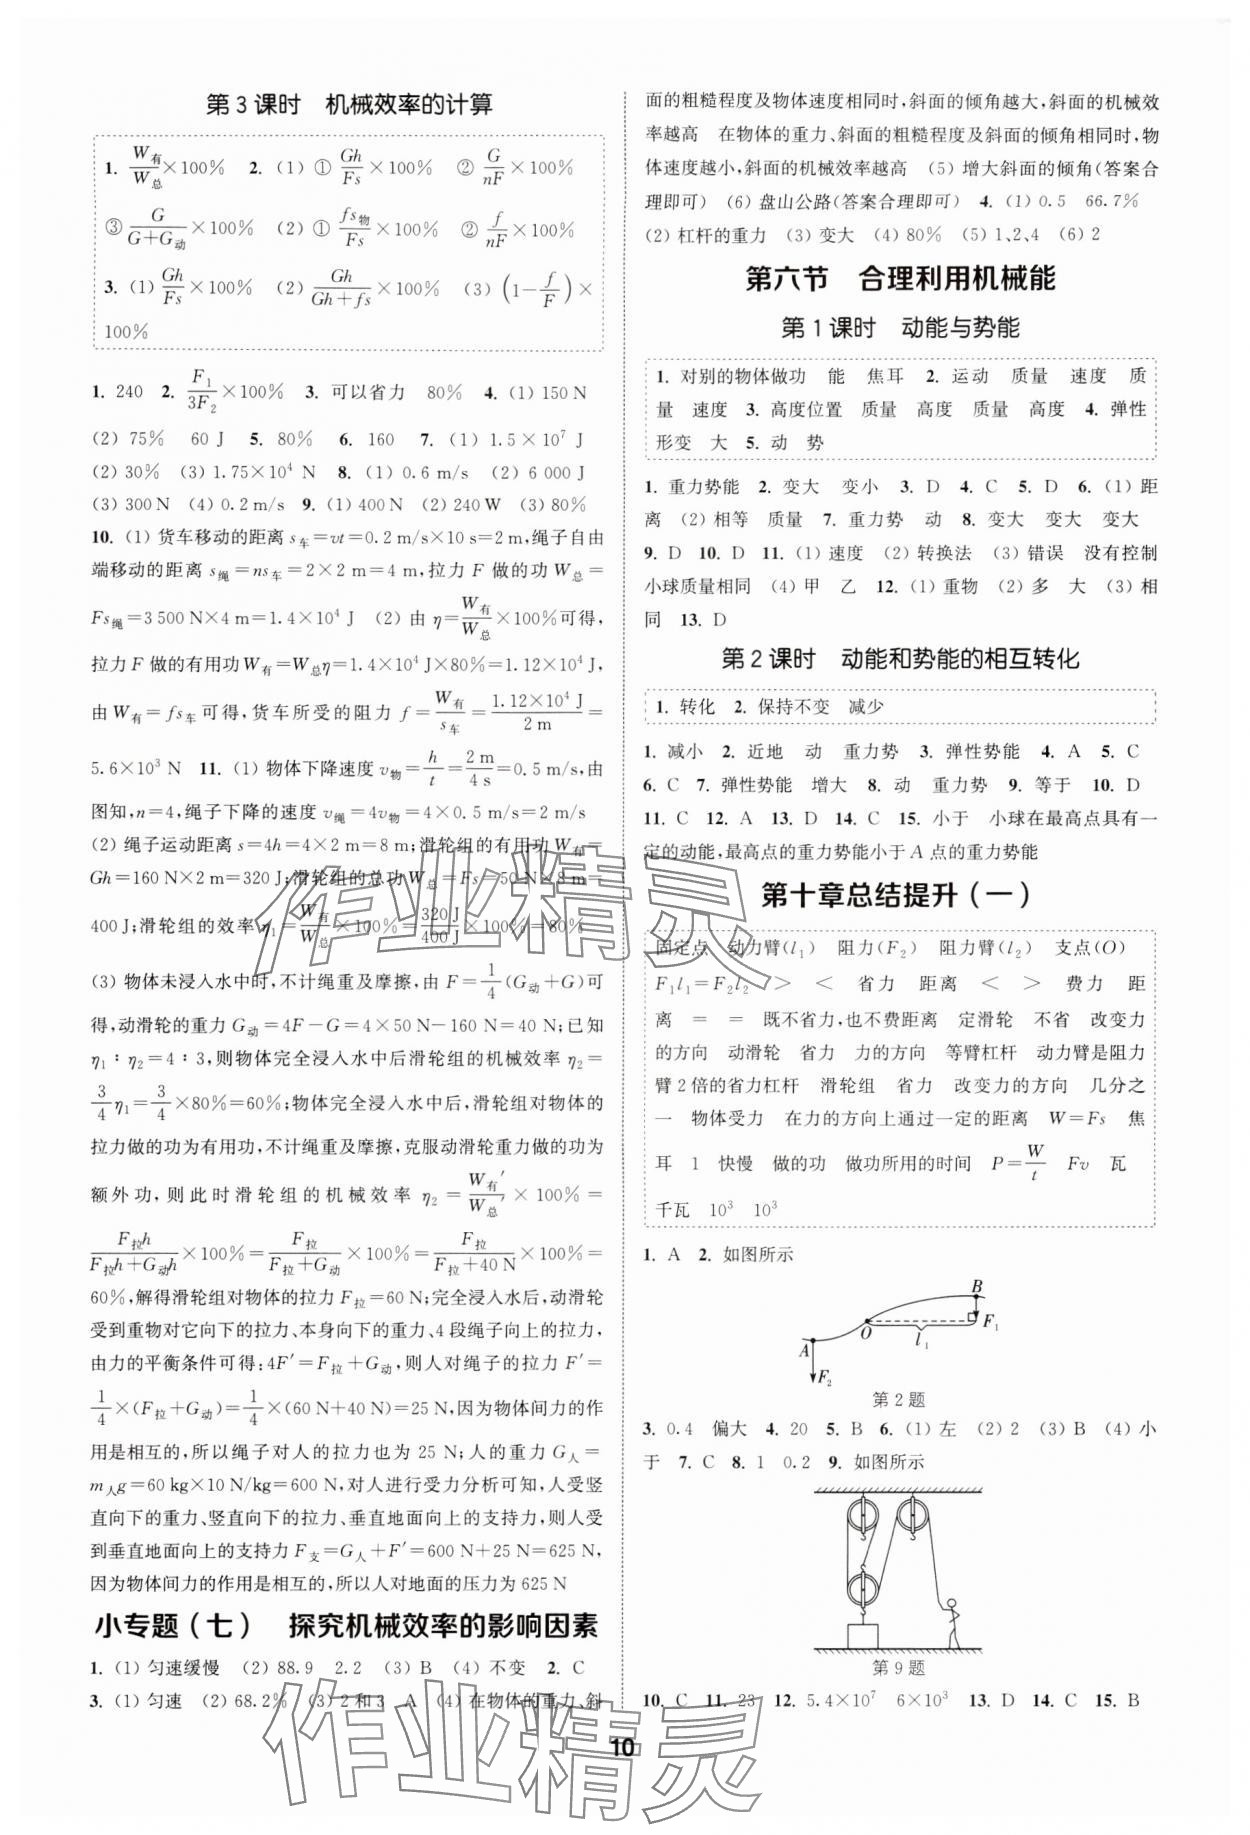 第3课时　机械效率的计算
1. W有/W总×100%　2. (1) ① Gh/Fs×100%　② G/nF×100%
③ G/(G+G动)×100%　(2) ① fs物/Fs×100%　② f/nF×100%
3. (1) Gh/Fs×100%　(2) Gh/(Gh+fs)×100%　(3) (1−f/F)×
100%
1. 240　2. F₁/3F₂×100%　3. 可以省力　80%　4. (1) 150 N
(2) 75%　60 J　5. 80%　6. 160　7. (1) 1.5×10⁷ J
(2) 30%　(3) 1.75×10⁴ N　8. (1) 0.6 m/s　(2) 6 000 J
(3) 300 N　(4) 0.2 m/s　9. (1) 400 N　(2) 240 W　(3) 80%
10. (1) 货车移动的距离 s车=vt=0.2 m/s×10 s=2 m,绳子自由
端移动的距离 s绳=ns车=2×2 m=4 m,拉力 F 做的功 W总=
Fs绳=3 500 N×4 m=1.4×10⁴ J　(2) 由 η=W有/W总×100%可得,
拉力 F 做的有用功 W有=W总η=1.4×10⁴ J×80%=1.12×10⁴ J,
由 W有=fs车可得,货车所受的阻力 f=W有/s车=1.12×10⁴ J/2 m=
5.6×10³ N　11. (1) 物体下降速度 v物=h/t=2 m/4 s=0.5 m/s,由
图知,n=4,绳子下降的速度 v绳=4v物=4×0.5 m/s=2 m/s
(2) 绳子运动距离 s=4h=4×2 m=8 m;滑轮组的有用功 W有=
Gh=160 N×2 m=320 J;滑轮组的总功 W总=Fs=50 N×8 m=
400 J;滑轮组的效率 η₁=W有/W总×100%=320 J/400 J×100%=80%
(3) 物体未浸入水中时,不计绳重及摩擦,由 F=1/4(G动+G)可
得,动滑轮的重力 G动=4F−G=4×50 N−160 N=40 N;已知
η₁∶η₂=4∶3,则物体完全浸入水中后滑轮组的机械效率 η₂=
3/4η₁=3/4×80%=60%;物体完全浸入水中后,滑轮组对物体的
拉力做的功为有用功,不计绳重及摩擦,克服动滑轮重力做的功为
额外功,则此时滑轮组的机械效率 η₂=W有′/W总′×100%=
F拉h/(F拉h+G动h)×100%=F拉/(F拉+G动)×100%=F拉/(F拉+40 N)×100%=
60%,解得滑轮组对物体的拉力 F拉=60 N;完全浸入水后,动滑轮
受到重物对它向下的拉力、本身向下的重力、4 段绳子向上的拉力,
由力的平衡条件可得:4F′=F拉+G动,则人对绳子的拉力 F′=
1/4×(F拉+G动)=1/4×(60 N+40 N)=25 N,因为物体间力的作
用是相互的,所以绳子对人的拉力也为 25 N;人的重力 G人=
m人g=60 kg×10 N/kg=600 N,对人进行受力分析可知,人受竖
直向下的重力、竖直向下的拉力、垂直地面向上的支持力,则人受
到垂直地面向上的支持力 F支=G人+F′=600 N+25 N=625 N,
因为物体间力的作用是相互的,所以人对地面的压力为 625 N
小专题(七)　探究机械效率的影响因素
1. (1) 匀速缓慢　(2) 88.9　2.2　(3) B　(4) 不变　2. C
3. (1) 匀速　(2) 68.2%　(3) 2 和 3　A　(4) 在物体的重力、斜
面的粗糙程度及物体速度相同时,斜面的倾角越大,斜面的机械效
率越高　在物体的重力、斜面的粗糙程度及斜面的倾角相同时,物
体速度越小,斜面的机械效率越高　(5) 增大斜面的倾角(答案合
理即可)　(6) 盘山公路(答案合理即可)　4. (1) 0.5　66.7%
(2) 杠杆的重力　(3) 变大　(4) 80%　(5) 1、2、4　(6) 2
第六节　合理利用机械能
第1课时　动能与势能
1. 对别的物体做功　能　焦耳　2. 运动　质量　速度　质
量　速度　3. 高度位置　质量　高度　质量　高度　4. 弹性
形变　大　5. 动　势
1. 重力势能　2. 变大　变小　3. D　4. C　5. D　6. (1) 距
离　(2) 相等　质量　7. 重力势　动　8. 变大　变大　变大
9. D　10. D　11. (1) 速度　(2) 转换法　(3) 错误　没有控制
小球质量相同　(4) 甲　乙　12. (1) 重物　(2) 多　大　(3) 相
同　13. D
第2课时　动能和势能的相互转化
1. 转化　2. 保持不变　减少
1. 减小　2. 近地　动　重力势　3. 弹性势能　4. A　5. C
6. C　7. 弹性势能　增大　8. 动　重力势　9. 等于　10. D
11. C　12. A　13. D　14. C　15. 小于　小球在最高点具有一
定的动能,最高点的重力势能小于 A 点的重力势能
第十章总结提升(一)
固定点　动力臂(l₁)　阻力(F₂)　阻力臂(l₂)　支点(O)
F₁l₁=F₂l₂　＞　＜　省力　距离　＜　＞　费力　距
离　=　=　既不省力,也不费距离　定滑轮　不省　改变力
的方向　动滑轮　省力　力的方向　等臂杠杆　动力臂是阻力
臂 2 倍的省力杠杆　滑轮组　省力　改变力的方向　几分之
一　物体受力　在力的方向上通过一定的距离　W=Fs　焦
耳　1　快慢　做的功　做功所用的时间　P=W/t　Fv　瓦
千瓦　10³　10³
1. A　2. 如图所示
B
O
F₁
l₁
A
F₂
第 2 题
3. 0.4　偏大　4. 20　5. B　6. (1) 左　(2) 2　(3) B　(4) 小
于　7. C　8. 1　0.2　9. 如图所示
第 9 题
10. C　11. 23　12. 5.4×10⁷　6×10³　13. D　14. C　15. B
10
作业精灵
作业精灵